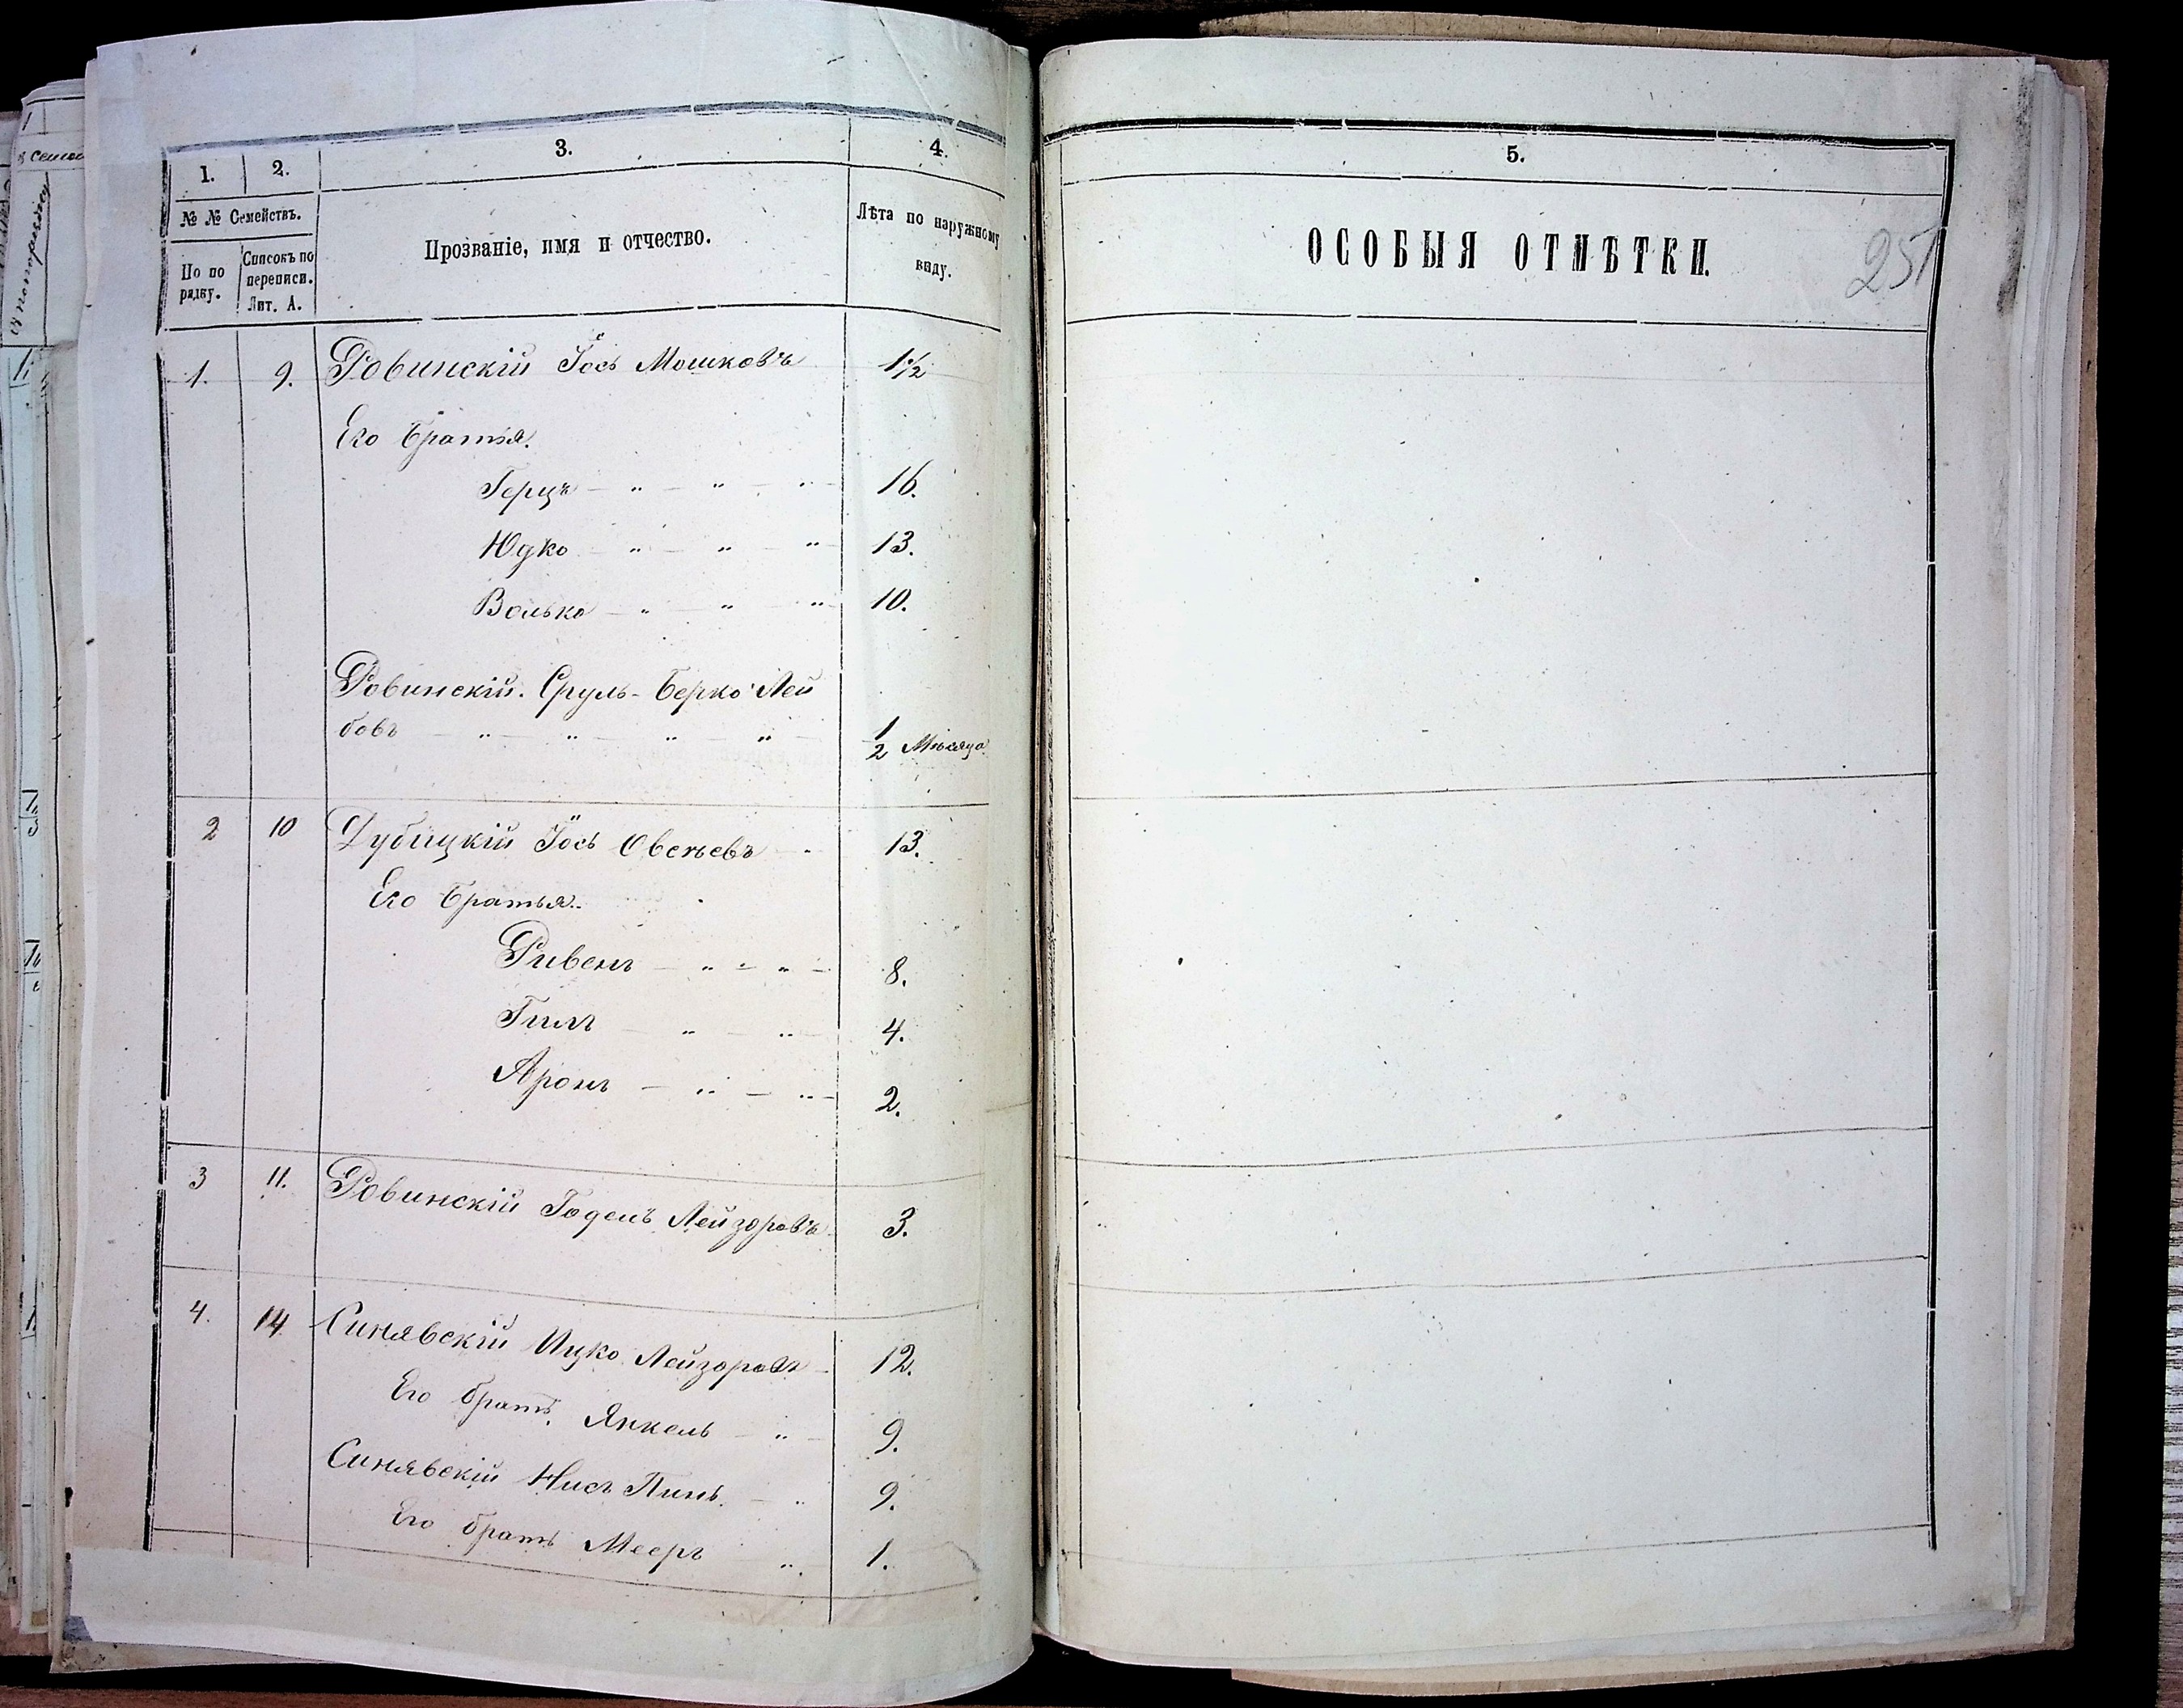 1.
2.
3.
4.
№ № Семействъ.
По по
рядку.
Списокъ по
переписи.
Лит. А.
Прозваніе, имя и отчество.
Лѣта по наружному
виду.
1. 9. Ровинскій Іось Мошковъ 1 1/2
Его братья.
Герцъ — " — " — " — 16.
Юдко — " — " — " — 13.
Волько — " — " " — 10.
Ровинскій. Сруль-Берко Лей
бовъ — " — " — " — " — 1/2 Мѣсяца.
2 10 Дубицкій Іось Овсѣевъ 13.
Его братья.
Рувенъ — " — " — 8.
Гилъ — " — " — 4.
Аронъ — " — " — 2.
3 11. Ровинскій Годель Лейзоровъ 3.
4. 14. Синявскій Ицко Лейзоровъ — 12.
Его братъ. Янкель — " — 9.
Синявскій Нисъ Пинь. — " 9.
Его братъ Мееръ ". 1.
5.
ОСОБЫЯ ОТМѢТКИ.
251